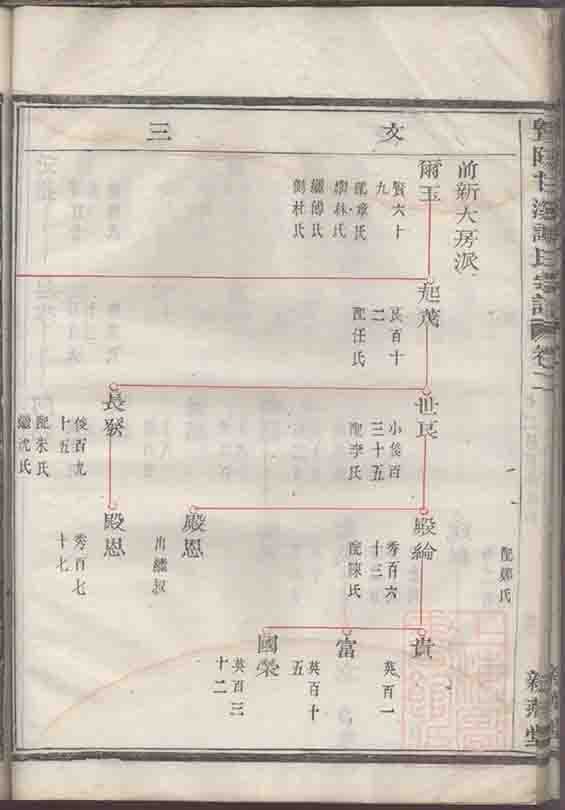 卷二
文
三
前新大房派
爾玉
賢六十
九
配章氏
繼林氏
繼傅氏
側杜氏
起茂
良百十
二
配任氏
世良
小俊百
三十五
配李氏
長發
俊百九
十五
配朱氏
繼沈氏
配鄭氏
殿綸
秀百六
十三
配陳氏
殿恩
出繼叔
殿恩
秀百七
十七
貴
英百一
富
英百十
五
國榮
英百三
十二